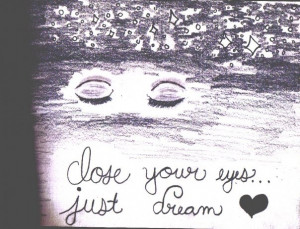 close your eyes...
just dream